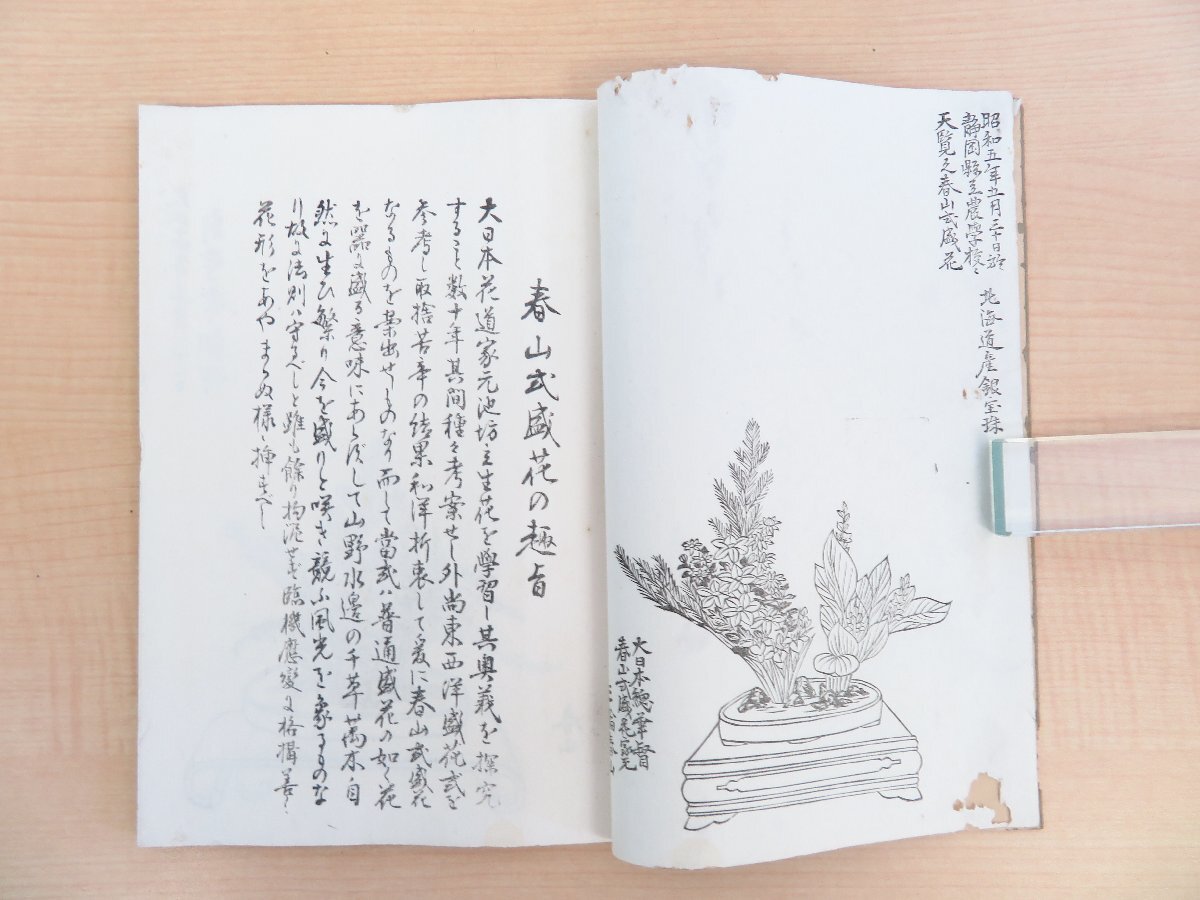 昭和五年五月三十日於
静岡縣立農學校ニ
天覧之春山式盛花
北海道産銀宝珠
大日本総華督
春山式盛花家元
春山式盛花の趣旨
大日本花道家元池坊立生花を學習し其奥義を探究
すること数十年其間種々考案せし外尚東西洋盛花式を
参考し取捨苦辛の結果和洋折衷して爰に春山式盛花
なるものを案出せしものなり而して當式ハ普通盛花の如く花
を器に盛る意味にあらずして山野水邊の千草萬木自
然に生ひ繁り今を盛りと咲き競ふ風光を象るものな
り故に法則ハ守るべしと雖も餘り拘泥せず臨機應變に格構善く
花形をあやまらぬ様ニ挿すべし